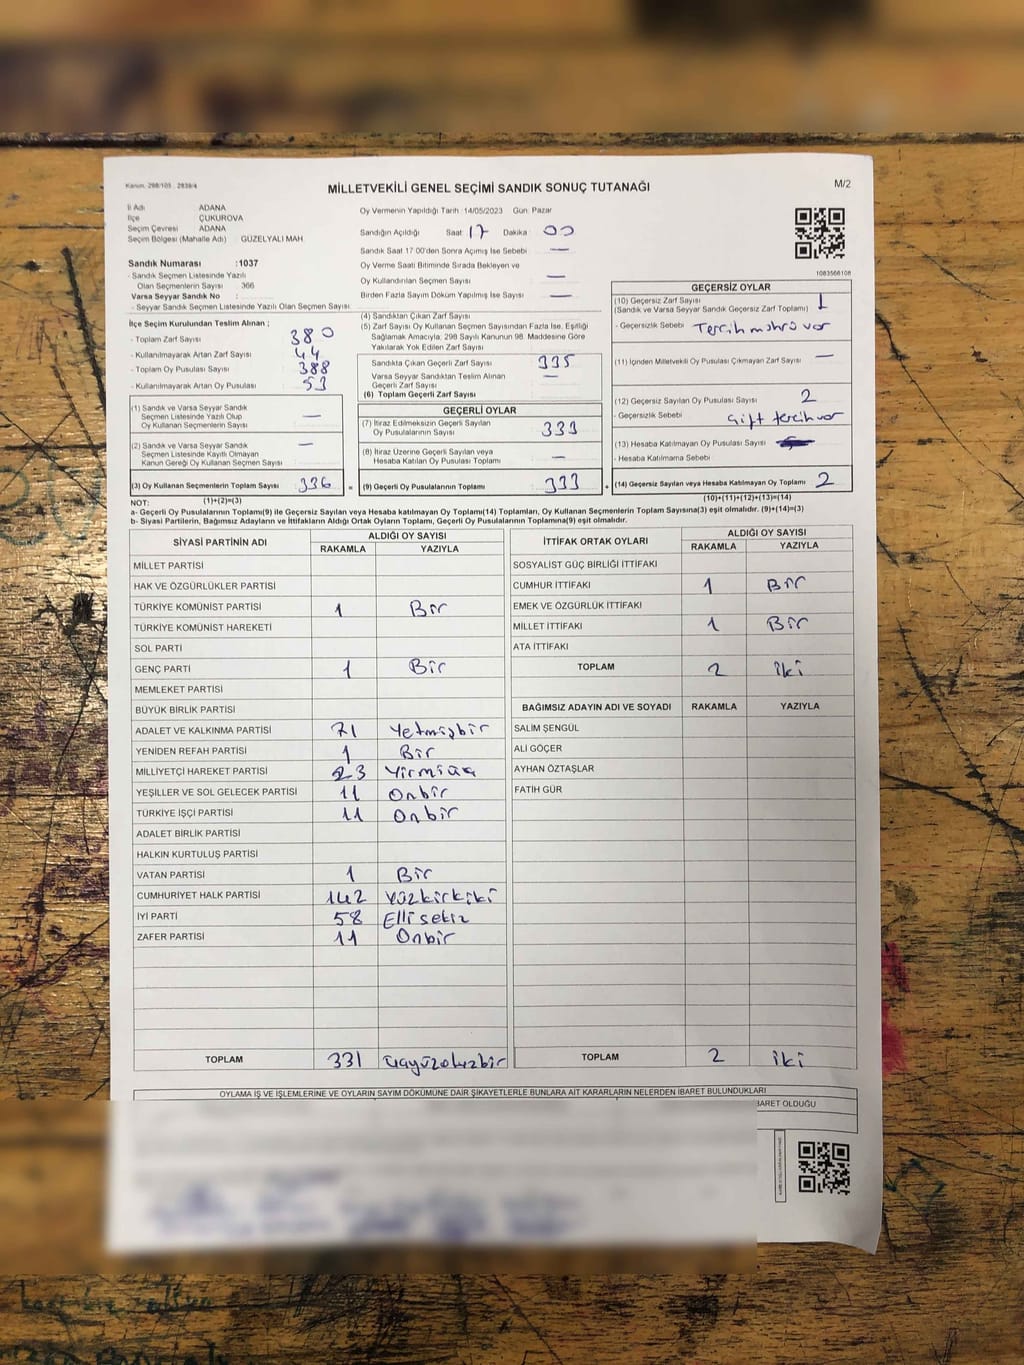 Kanun. 298/105 . 2839/4
MİLLETVEKİLİ GENEL SEÇİMİ SANDIK SONUÇ TUTANAĞI
M/2
İl Adı ADANA
İlçe ÇUKUROVA
Seçim Çevresi ADANA
Seçim Bölgesi (Mahalle Adı) GÜZELYALI MAH.
Sandık Numarası :1037
- Sandık Seçmen Listesinde Yazılı
Olan Seçmenlerin Sayısı 366
Varsa Seyyar Sandık No :
- Seyyar Sandık Seçmen Listesinde Yazılı Olan Seçmen Sayısı
İlçe Seçim Kurulundan Teslim Alınan ;
- Toplam Zarf Sayısı 380
- Kullanılmayarak Artan Zarf Sayısı 44
- Toplam Oy Pusulası Sayısı 388
- Kullanılmayarak Artan Oy Pusulası 53
(1) Sandık ve Varsa Seyyar Sandık
Seçmen Listesinde Yazılı Olup
Oy Kullanan Seçmenlerin Sayısı —
(2) Sandık ve Varsa Seyyar Sandık
Seçmen Listesinde Kayıtlı Olmayan
Kanun Gereği Oy Kullanan Seçmen Sayısı —
(3) Oy Kullanan Seçmenlerin Toplam Sayısı 336 =
Oy Vermenin Yapıldığı Tarih 14/05/2023 Gün: Pazar
Sandığın Açıldığı Saat 17 Dakika 00
Sandık Saat 17 00'den Sonra Açılmış İse Sebebi —
Oy Verme Saati Bitiminde Sırada Bekleyen ve
Oy Kullandırılan Seçmen Sayısı —
Birden Fazla Sayım Döküm Yapılmış İse Sayısı —
(4) Sandıktan Çıkan Zarf Sayısı
(5) Zarf Sayısı Oy Kullanan Seçmen Sayısından Fazla İse, Eşitliği
Sağlamak Amacıyla; 298 Sayılı Kanunun 98. Maddesine Göre
Yakılarak Yok Edilen Zarf Sayısı
Sandıkta Çıkan Geçerli Zarf Sayısı 335
Varsa Seyyar Sandıktan Teslim Alınan
Geçerli Zarf Sayısı —
(6) Toplam Geçerli Zarf Sayısı
GEÇERLİ OYLAR
(7) İtiraz Edilmeksizin Geçerli Sayılan
Oy Pusulalarının Sayısı 333
(8) İtiraz Üzerine Geçerli Sayılan veya
Hesaba Katılan Oy Pusulası Toplamı —
(9) Geçerli Oy Pusulalarının Toplamı 333 +
1083566108
GEÇERSİZ OYLAR
(10) Geçersiz Zarf Sayısı 1
(Sandık ve Varsa Seyyar Sandık Geçersiz Zarf Toplamı)
- Geçersizlik Sebebi Tercih mührü var
(11) İçinden Milletvekili Oy Pusulası Çıkmayan Zarf Sayısı —
(12) Geçersiz Sayılan Oy Pusulası Sayısı 2
- Geçersizlik Sebebi Çift tercih var
(13) Hesaba Katılmayan Oy Pusulası Sayısı
- Hesaba Katılmama Sebebi
(14) Geçersiz Sayılan veya Hesaba Katılmayan Oy Toplamı 2
NOT: (1)+(2)=(3) (10)+(11)+(12)+(13)=(14)
a- Geçerli Oy Pusulalarının Toplamı(9) ile Geçersiz Sayılan veya Hesaba katılmayan Oy Toplamı(14) Toplamları, Oy Kullanan Seçmenlerin Toplam Sayısına(3) eşit olmalıdır. (9)+(14)=(3)
b- Siyasi Partilerin, Bağımsız Adayların ve İttifakların Aldığı Ortak Oyların Toplamı, Geçerli Oy Pusulalarının Toplamına(9) eşit olmalıdır.
SİYASİ PARTİNİN ADI ALDIĞI OY SAYISI
RAKAMLA YAZIYLA
MİLLET PARTİSİ
HAK VE ÖZGÜRLÜKLER PARTİSİ
TÜRKİYE KOMÜNİST PARTİSİ 1 Bir
TÜRKİYE KOMÜNİST HAREKETİ
SOL PARTİ
GENÇ PARTİ 1 Bir
MEMLEKET PARTİSİ
BÜYÜK BİRLİK PARTİSİ
ADALET VE KALKINMA PARTİSİ 71 Yetmişbir
YENİDEN REFAH PARTİSİ 1 Bir
MİLLİYETÇİ HAREKET PARTİSİ 23 Yirmiüç
YEŞİLLER VE SOL GELECEK PARTİSİ 11 Onbir
TÜRKİYE İŞÇİ PARTİSİ 11 Onbir
ADALET BİRLİK PARTİSİ
HALKIN KURTULUŞ PARTİSİ
VATAN PARTİSİ 1 Bir
CUMHURİYET HALK PARTİSİ 142 Yüzkirkiki
İYİ PARTİ 58 Ellisekiz
ZAFER PARTİSİ 11 Onbir
TOPLAM 331 Üçyüzotuzbir
İTTİFAK ORTAK OYLARI ALDIĞI OY SAYISI
RAKAMLA YAZIYLA
SOSYALİST GÜÇ BİRLİĞİ İTTİFAKI
CUMHUR İTTİFAKI 1 Bir
EMEK VE ÖZGÜRLÜK İTTİFAKI
MİLLET İTTİFAKI 1 Bir
ATA İTTİFAKI
TOPLAM 2 iki
BAĞIMSIZ ADAYIN ADI VE SOYADI RAKAMLA YAZIYLA
SALİM ŞENGÜL
ALİ GÖÇER
AYHAN ÖZTAŞLAR
FATİH GÜR
TOPLAM 2 iki
OYLAMA İŞ VE İŞLEMLERİNE VE OYLARIN SAYIM DÖKÜMÜNE DAİR ŞİKAYETLERLE BUNLARA AİT KARARLARIN NELERDEN İBARET BULUNDUKLARI
İBARET OLDUĞU